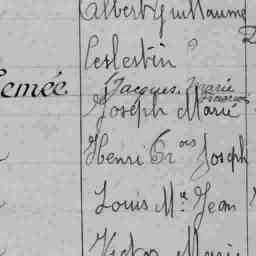 Albert Guillaume
Celestin ?
Jacques Marie
emée Joseph Marie
Henri Fr ois Joseph
Louis M.e Jean
Victor Marie